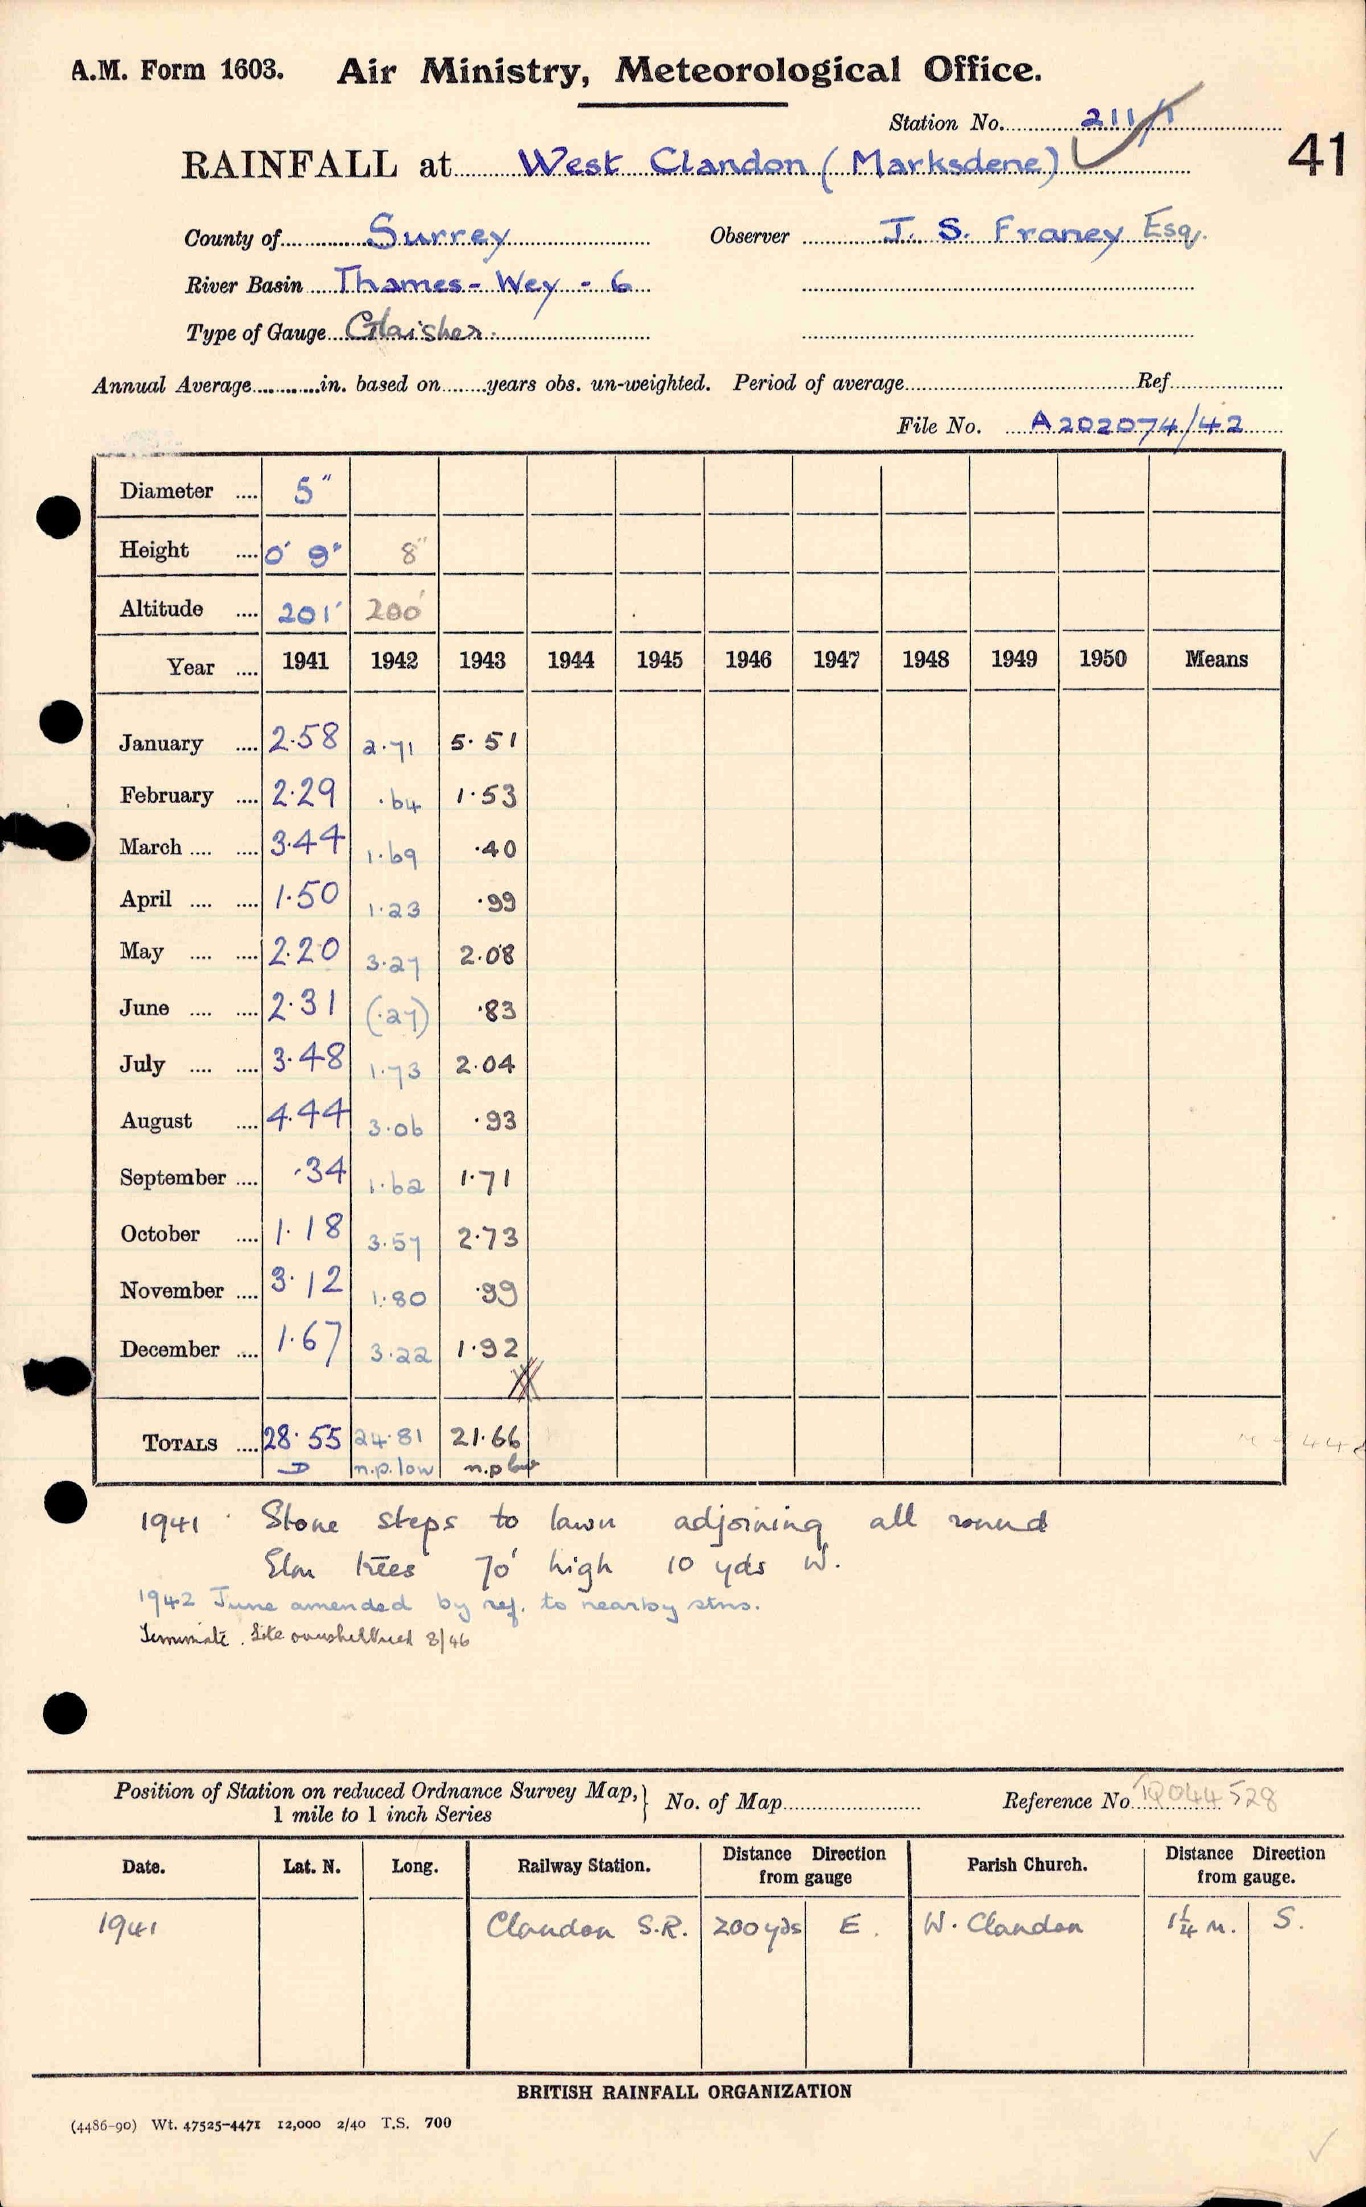 A.M. Form 1603. Air Ministry, Meteorological Office.
Station No. 211/1
41
RAINFALL at West Clandon (Marksdene)
County of Surrey Observer J. S. Franey Esq.
River Basin Thames - Wey - 6
Type of Gauge Glaisher.
Annual Average in. based on years obs. un-weighted. Period of average Ref
File No. A202074/42
Diameter 5"
Height 0' 9" 8"
Altitude 201' 200'
Year 1941 1942 1943 1944 1945 1946 1947 1948 1949 1950 Means
January 2.58 2.71 5.51
February 2.29 .64 1.53
March 3.44 1.69 .40
April 1.50 1.23 .99
May 2.20 3.27 2.08
June 2.31 (.27) .83
July 3.48 1.73 2.04
August 4.44 3.06 .93
September .34 1.62 1.71
October 1.18 3.57 2.73
November 3.12 1.80 .99
December 1.67 3.22 1.92
TOTALS 28.55 24.81 21.66
n.p. low n.p low
1941 Stone steps to lawn adjoining all round
Elm trees 70' high 10 yds W.
1942 June amended by ref. to nearby stns.
Terminate. Site oversheltered 8/46
Position of Station on reduced Ordnance Survey Map, } No. of Map Reference No. TQ044528
1 mile to 1 inch Series
Date. Lat. N. Long. Railway Station. Distance Direction from gauge Parish Church. Distance Direction from gauge.
1941 Clandon S.R. 200 yds E. W. Clandon 1¼ m. S.
BRITISH RAINFALL ORGANIZATION
(4486-90) Wt. 47525-4471 12,000 2/40 T.S. 700